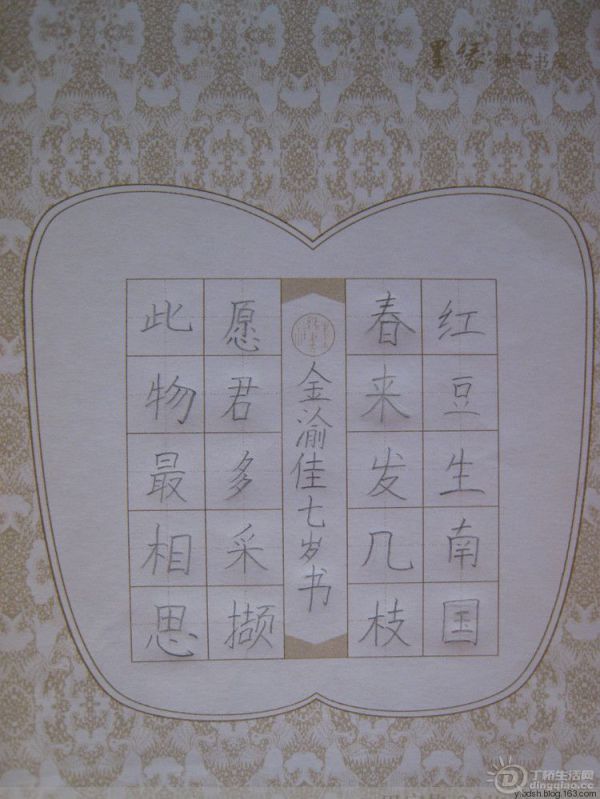 墨缘 硬笔书
红豆生南国
春来发几枝
金渝佳七岁书
愿君多采撷
此物最相思
丁桥生活网
dingqiao.com
blog.163.com